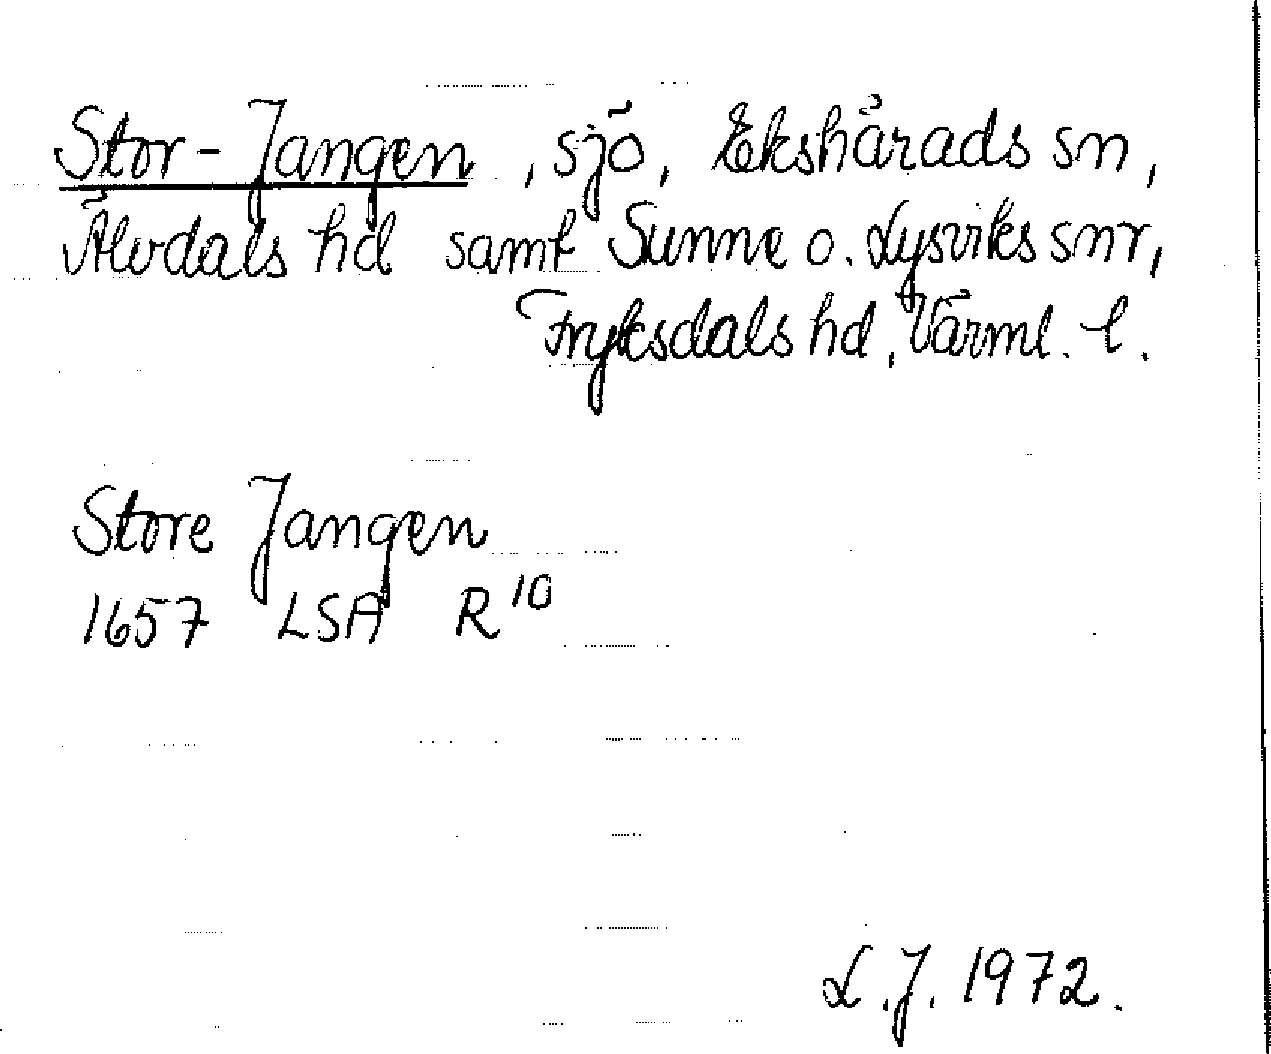 Stor-Jangen, sjö, Ekshärads sn,
Älvdals hd samt Sunne o. Lysviks snr,
Fryksdals hd, Värml. l.
Store Jangen
1657 LSA R¹⁰
L.J. 1972.